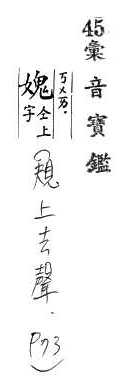 45彙音寶鑑
媿仝上字
(規上去聲. P73)